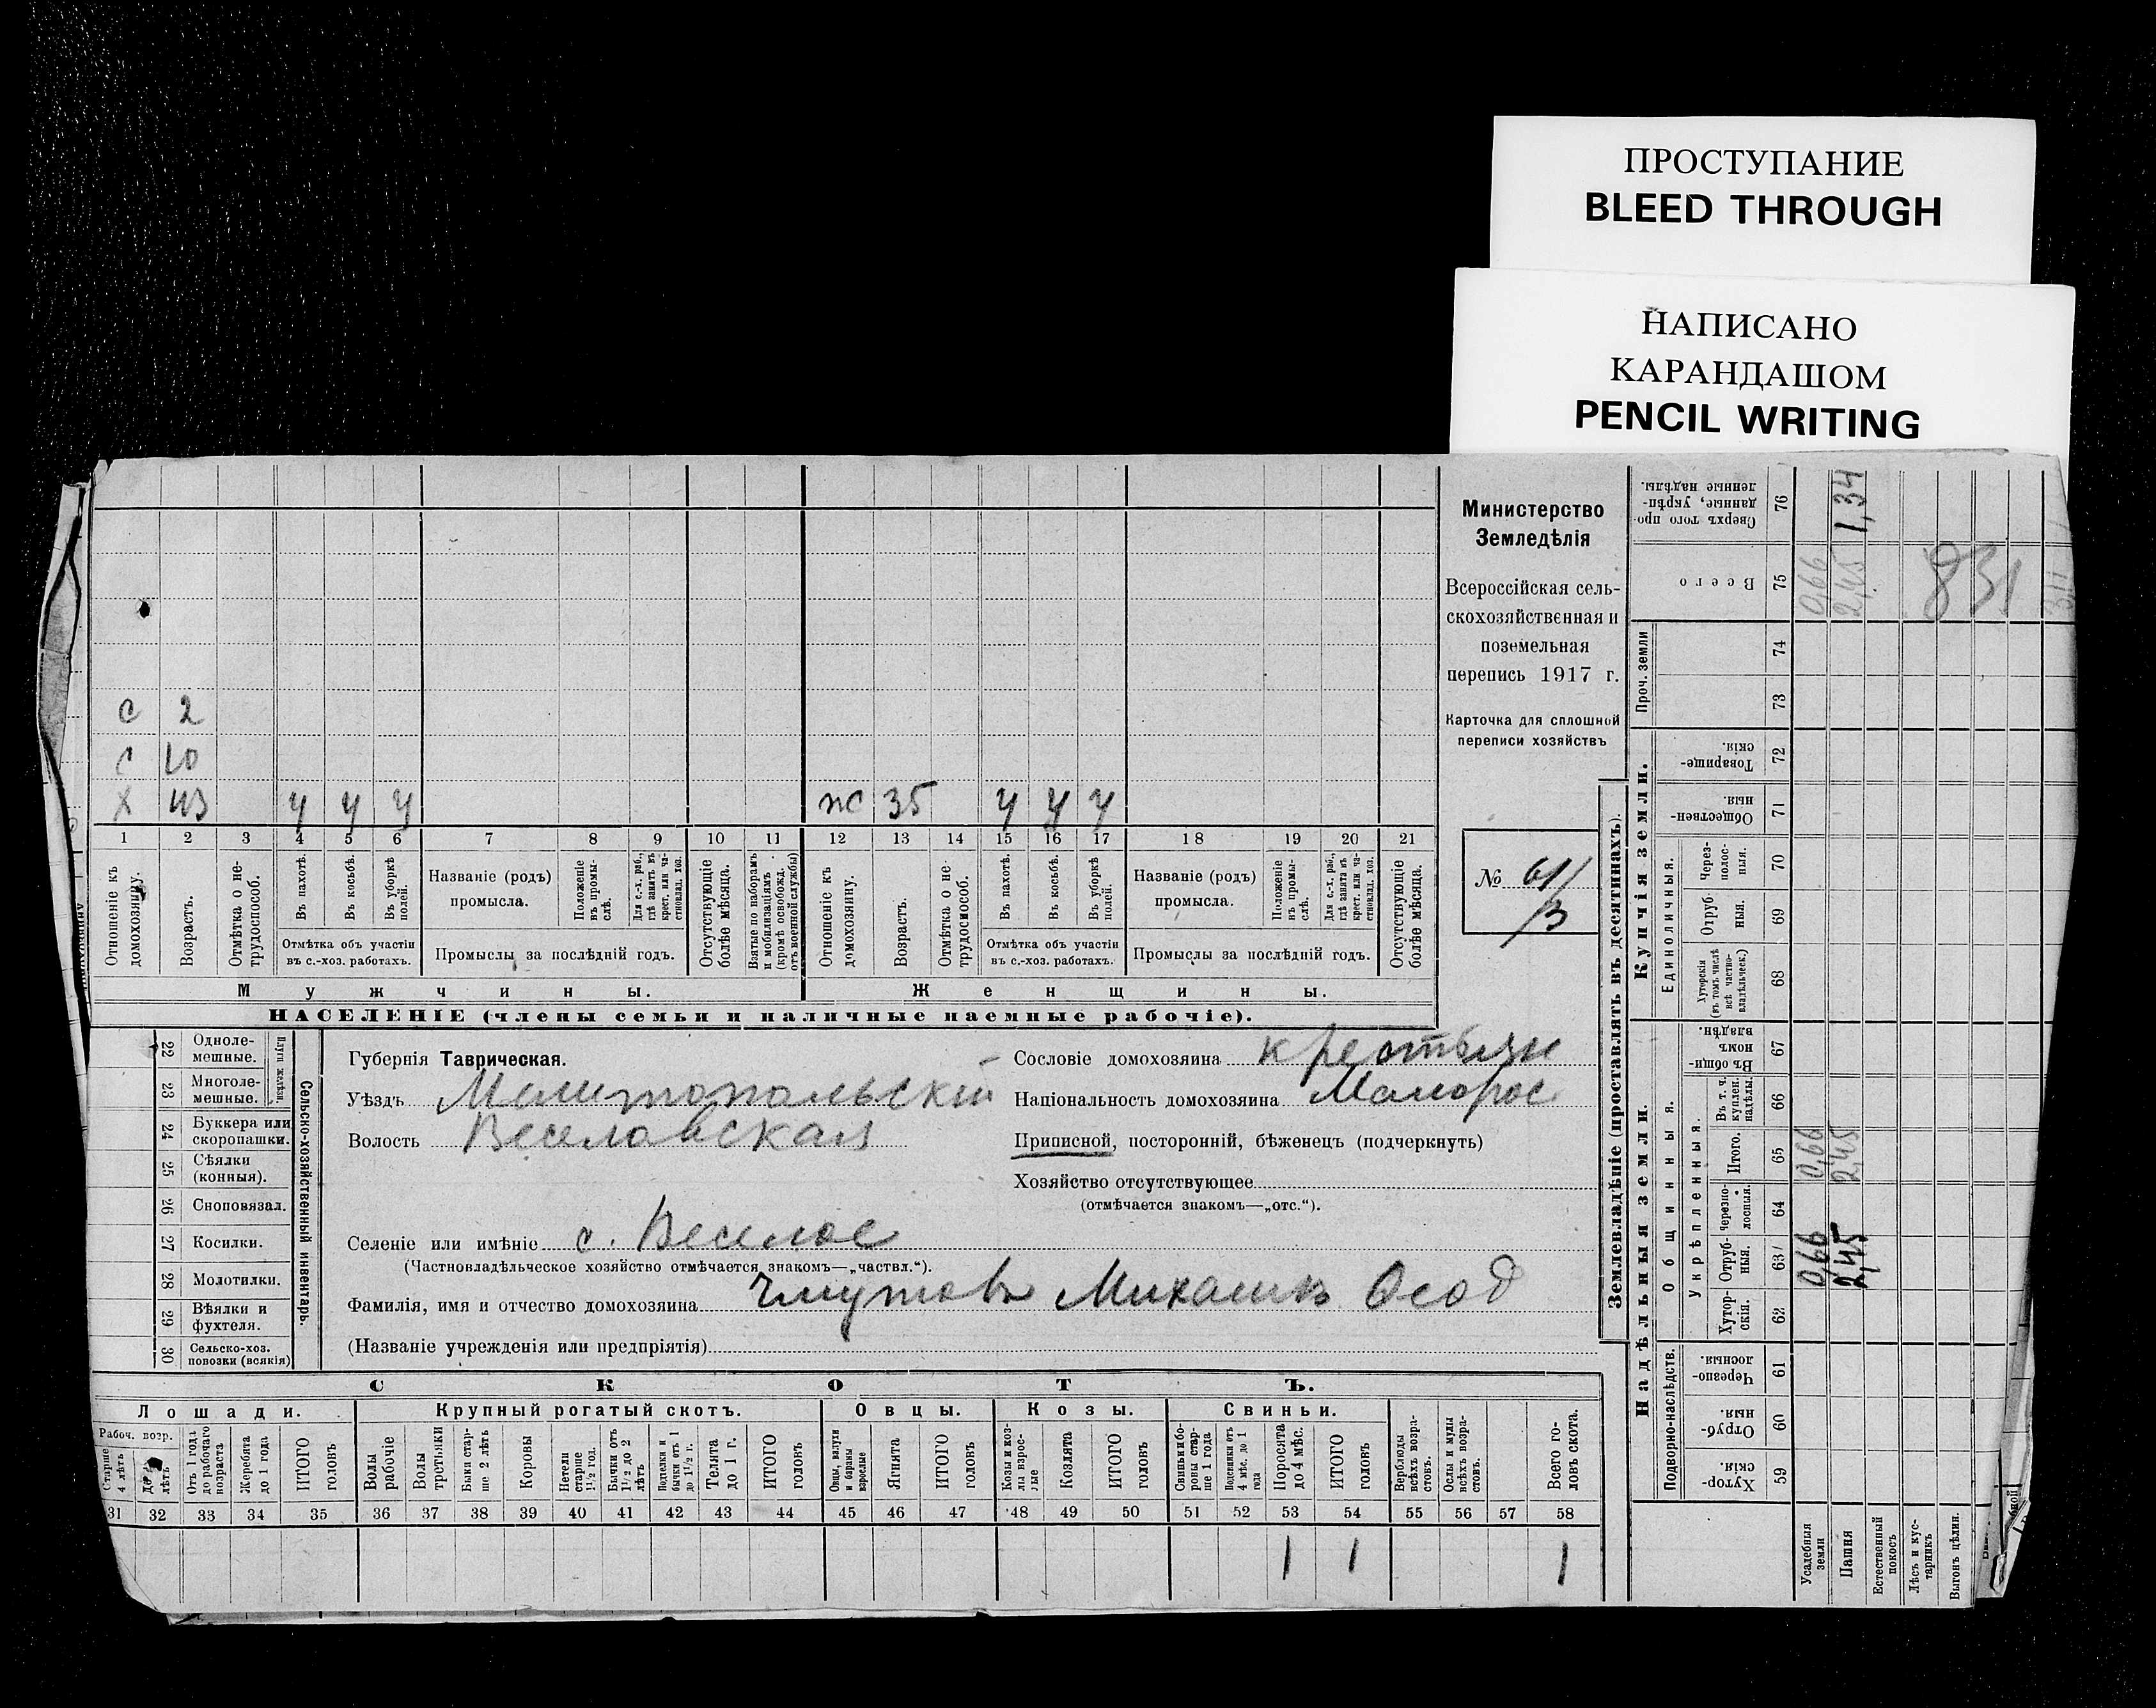 ПРОСТУПАНИЕ
BLEED THROUGH
НАПИСАНО
КАРАНДАШОМ
PENCIL WRITING
Министерство
Земледѣлія
Всероссійская сель-
скохозяйственная и
поземельная
перепись 1917 г.
Карточка для сплошной
переписи хозяйствъ
№ 61/
13
с 2
с 10
х 43 у у у ж 35 у у у
1 2 3 4 5 6 7 8 9 10 11 12 13 14 15 16 17 18 19 20 21
Отношеніе къ домохозяину.
Возрастъ.
Отмѣтка о не-трудоспособ.
Въ пахотѣ.
Въ косьбѣ.
Въ уборкѣ полей.
Отмѣтка объ участіи
въ с.-хоз. работахъ.
Названіе (родъ)
промысла.
Положеніе въ промы-слѣ.
Для с.-х. раб., гдѣ занятъ въ крест. или ча-стновлад. хоз.
Промыслы за послѣдній годъ.
Отсутствующіе болѣе мѣсяца.
Взятые по наборамъ и мобилизаціямъ (кромѣ освобожд. отъ военной службы)
Отношеніе къ домохозяину.
Возрастъ.
Отмѣтка о не-трудоспособ.
Въ пахотѣ.
Въ косьбѣ.
Въ уборкѣ полей.
Отмѣтка объ участіи
въ с.-хоз. работахъ.
Названіе (родъ)
промысла.
Положеніе въ промы-слѣ.
Для с.-х. раб., гдѣ занята въ крест. или ча-стновлад. хоз.
Промыслы за послѣдній годъ.
Отсутствующіе болѣе мѣсяца.
Мужчины. Женщины.
НАСЕЛЕНІЕ (члены семьи и наличные наемные рабочіе).
22 Одноле-мешные.
23 Многоле-мешные.
Плуги желѣзн
24 Буккера или скоропашки.
25 Сѣялки (конныя).
26 Сноповязал.
27 Косилки.
28 Молотилки.
29 Вѣялки и фухтеля.
30 Сельско-хоз. повозки (всякія)
Сельско-хозяйственный инвентарь.
Губернія Таврическая.
Уѣздъ Мелитопольскій
Волость Веселовская
Сословіе домохозяина крестьян
Національность домохозяина Малорос
Приписной, посторонній, бѣженецъ (подчеркнуть)
Хозяйство отсутствующее
(отмѣчается знакомъ—„отс.“).
Селеніе или имѣніе с. Веселое
(Частновладѣльческое хозяйство отмѣчается знакомъ—„частвл.“).
Фамилія, имя и отчество домохозяина Чмутовъ Михаилъ Осод
(Названіе учрежденія или предпріятія)
СКОТЪ.
Лошади. Крупный рогатый скотъ. Овцы. Козы. Свиньи.
Рабоч. возр.
Старше 4 лѣтъ
До 4 лѣтъ
Отъ 1 года до рабочаго возраста
Жеребята до 1 года
ИТОГО головъ
Волы рабочіе
Волы третьяки
Быки стар-ше 2 лѣтъ
Коровы
Нетели старше 1½ год.
Бычки отъ 1½ до 2 лѣтъ
Подтелки и бычки отъ 1 до 1½ г.
Телята до 1 г.
ИТОГО головъ
Овцы, валухи и бараны взрослые
Ягнята
ИТОГО головъ
Козы и коз-лы взрос-лые
Козлята
ИТОГО головъ
Свиньи и бо-ровы стар-ше 1 года
Подсвинки отъ 4 мѣс. до 1 года
Поросята до 4 мѣс.
ИТОГО головъ
Верблюды всѣхъ возра-стовъ.
Ослы и мулы всѣхъ возра-стовъ.
Всего го-ловъ скота.
31 32 33 34 35 36 37 38 39 40 41 42 43 44 45 46 47 48 49 50 51 52 53 54 55 56 57 58
1 1 1
Землевладѣніе (проставлять въ десятинахъ).
Надѣльныя земли.
Купчія земли.
Проч. земли
Подворно-наслѣдств.
Общинныя.
Укрѣпленныя.
Единоличныя.
59 Хутор-скія.
60 Отруб-ныя.
61 Черезпо-лосныя.
62 Хутор-скія.
63 Отруб-ныя.
64 Черезпо-лосныя.
65 Итого.
66 Въ т. ч. куплен. надѣлы.
67 Въ общи-номъ владѣн.
68 Хуторскія (въ томъ числѣ всѣ частно-владѣльческ.)
69 Отруб-ныя.
70 Через-полос-ныя.
71 Обществен-ныя.
72 Товарище-скія.
73
74
75 Всего
76 Сверхъ того про-данные, укрѣп-ленные надѣлы.
Усадебныя земли
0,66 0,66 0,66
Пашня
2,45 2,45 2,45 1,34
Естественный покосъ
Лѣсъ и кус-тарникъ
Выгонъ цѣлин.
831